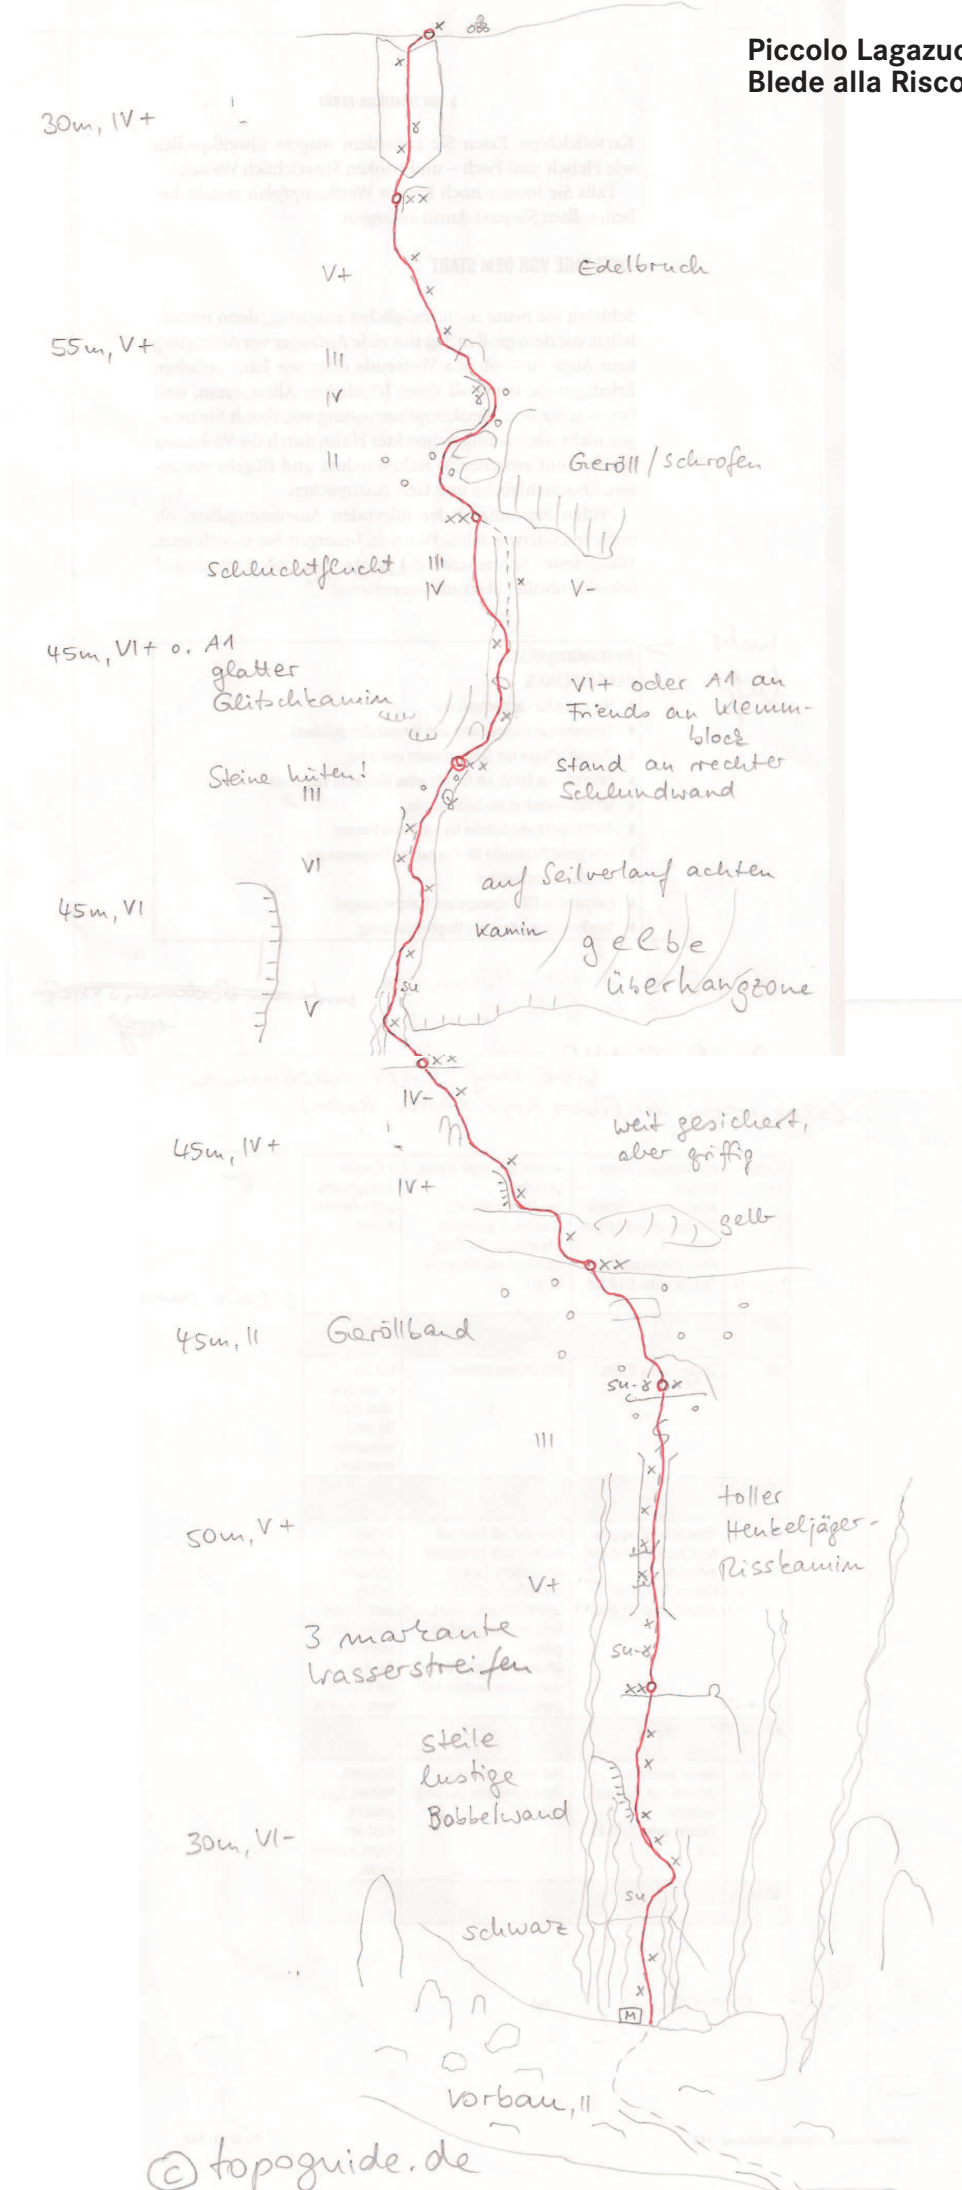 Piccolo Lagazuo
Blede alla Risco
30m, IV+
V+
Edelbruch
55m, V+
III
IV
II
Geröll/Schrofen
Schluchtflucht
III
IV
V-
45m, VI+ o. A1
glatter
Glitschkamin
VI+ oder A1 an
Friends an Klemm-
block
Stand an rechter
Schlundwand
Steine hüten!
III
VI
auf Seilverlauf achten
45m, VI
Kamin
gelbe
überhangzone
su
V
IV-
weit gesichert,
aber griffig
45m, IV+
IV+
gelb
45m, II
Geröllband
su-
III
toller
Henkeljäger-
Risskamin
50m, V+
V+
3 markante
Wasserstreifen
su-
steile
lustige
Bobbelwand
30m, VI-
su
schwarz
M
Vorbau, II
© topoguide.de